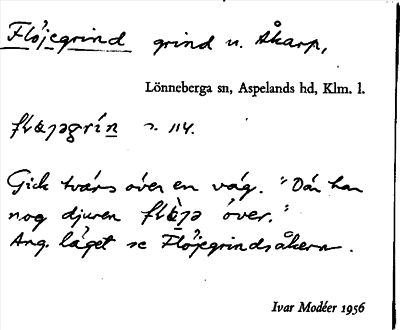 Flöjegrind grind n. Åkarp,
Lönneberga sn, Aspelands hd, Klm. l.
s. 114.
Gick tvärs över en väg. "Där han
nog djuren över."
Ang. läget se Flöjegrindsåkern.
Ivar Modéer 1956